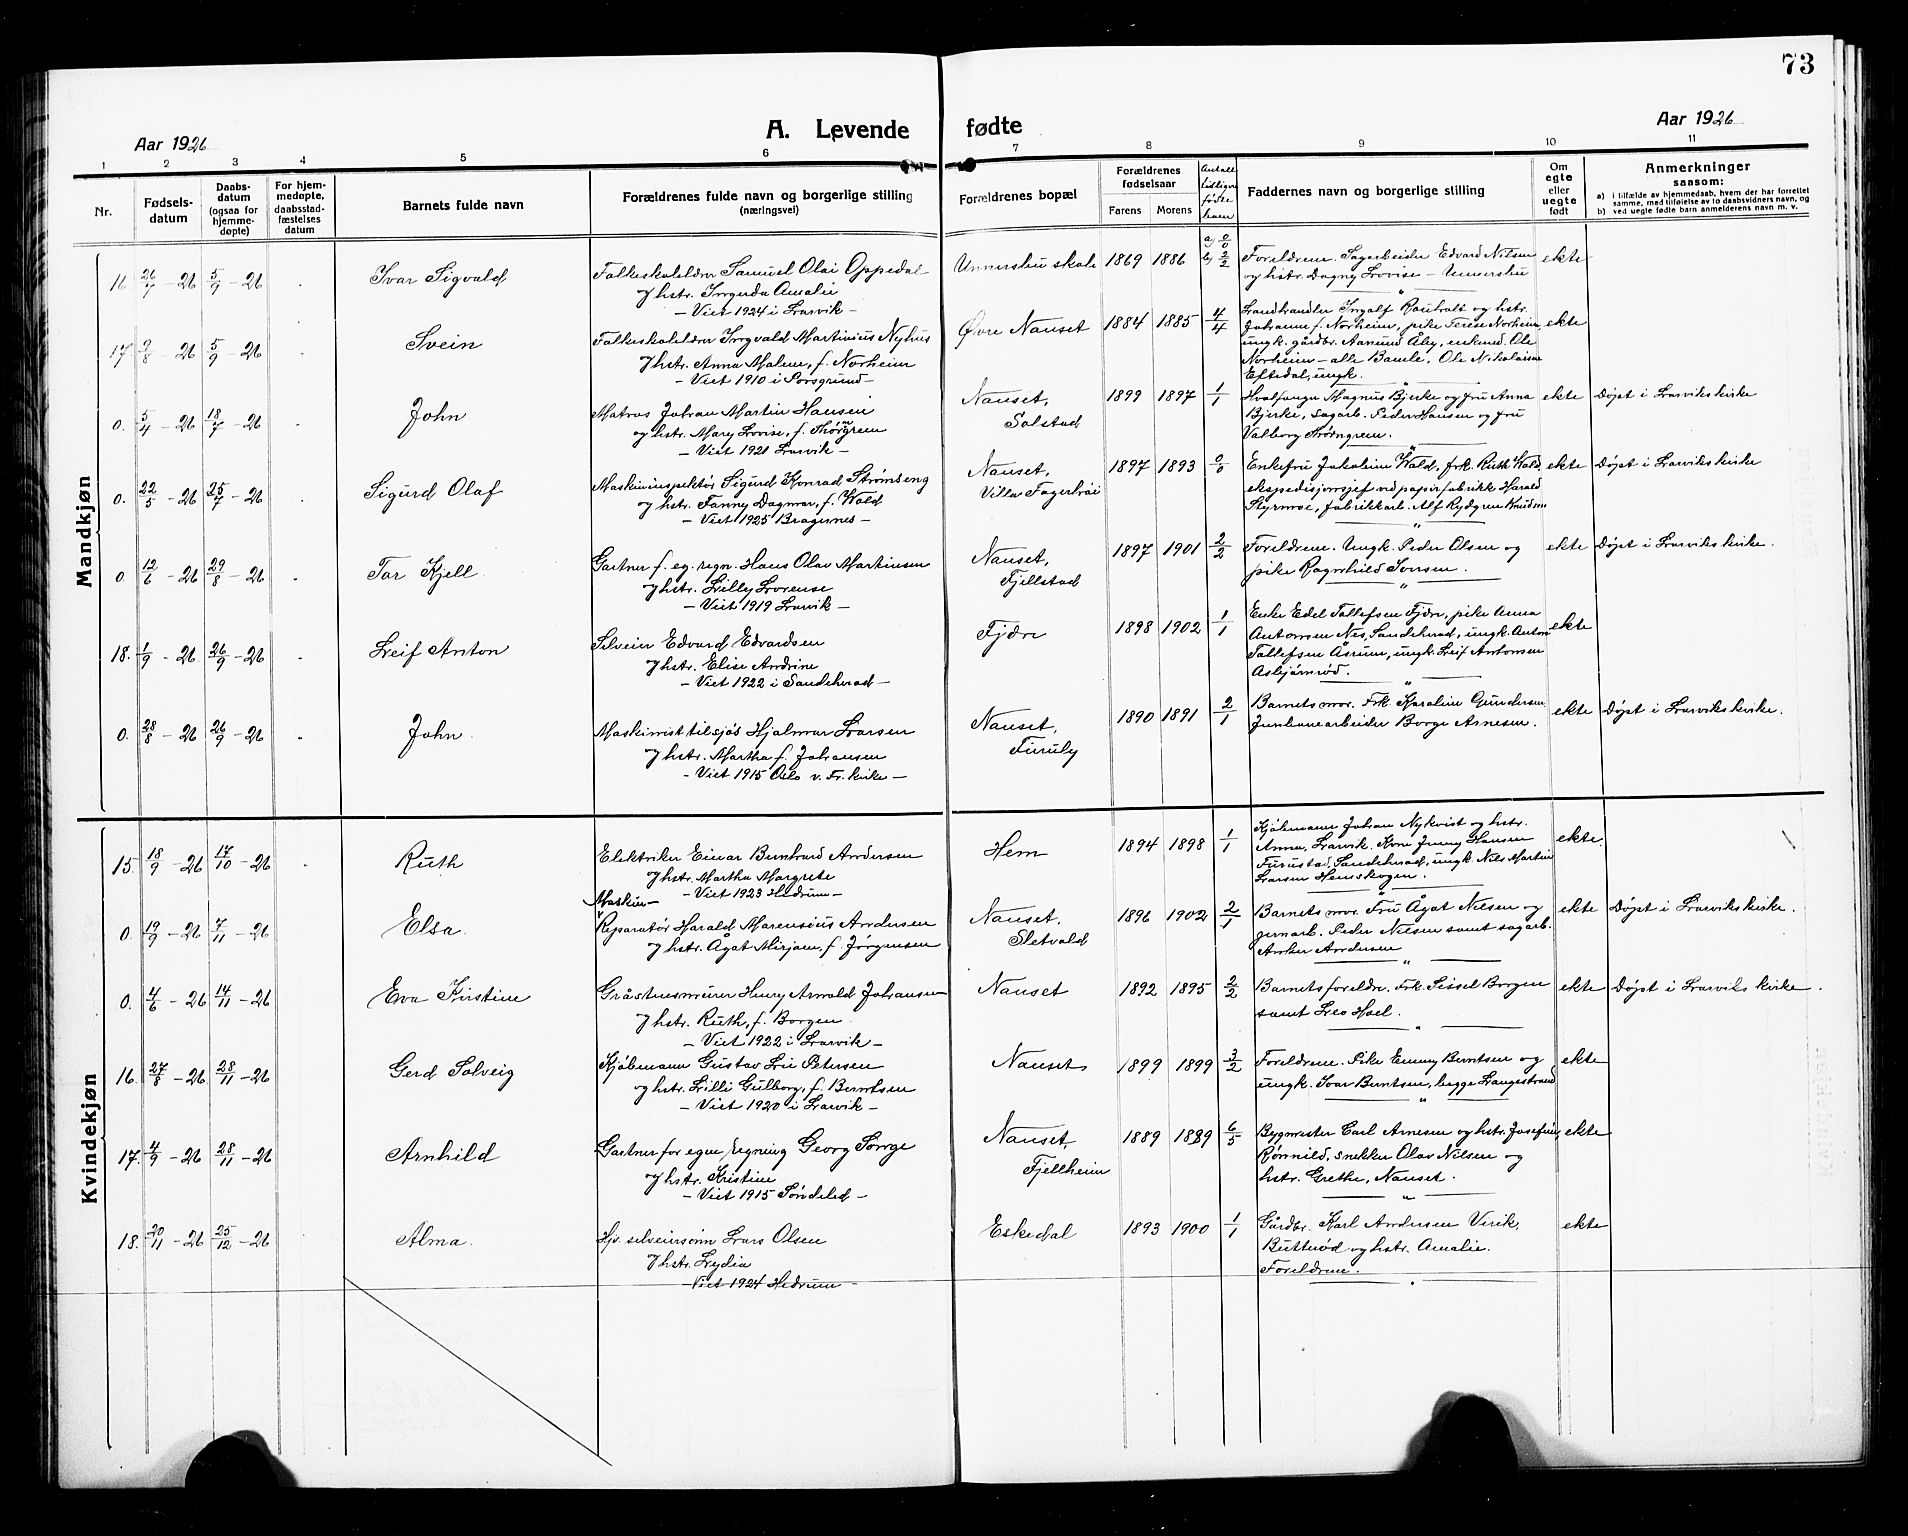 73
A. Levende fødte
Aar 1926
Aar 1926
1 2 3 4 5 6 7 8 9 10 11
Nr.
Fødselsdatum
Daabsdatum (ogsaa for hjemmedøpte)
For hjemmedøpte, daabsstadfæstelses datum
Barnets fulde navn
Forældrenes fulde navn og borgerlige stilling (næringsvei)
Forældrenes bopæl
Forældrenes fødselsaar
Farens Morens
Antall tidligere fødte barn
Faddernes navn og borgerlige stilling
Om egte eller uegte født
Anmerkninger saasom:
a) i tilfælde av hjemmedaab, hvem der har forrettet samme, med tilføielse av to daabsvidners navn, og
b) ved uegte fødte barn anmelderens navn m. v.
Mandkjøn
16. 26/7 - 26 5/9 - 26 Ivar Sigvald
Folkeskolelærer Samuel Olai Oppedal
og hstr. Ingerda Amalie
- Viet 1924 i Larvik -
Unnersbu skole 1869 1886 a) 0/0 b) 2/2
Foreldrene. Sagarbeider Edvard Nilsen
og hstr. Dagny Lovise - Unnersbu
ekte
17. 9/8 - 26 5/9 - 26 Svein
Folkeskolelærer Ingvald Martinius Nyhus
og hstr. Anna Malene, f. Norheim
- Viet 1910 i Porsgrund -
Øvre Nanset 1884 1885 4/4
Landhandler Ingolf Rauholt og hstr.
Johanne f. Norheim, pike Terese Norheim
ungk. gårdbr. Aamund Åby, enkemd. Ole
Norheim - alle Bamle, Ole Nikolaisen
Eftedal, ungk.
ekte
0. 5/4 - 26 18/7 - 26 John
Matros Johan Martin Hansen
og hstr. Mary Lovise, f. Thørngren
- Viet 1921 Larvik -
Nanset, Solstad 1899 1897 1/1
Hvalfanger Magnus Bjerke og fru Anna
Bjerke, sagarb. Peder Hansen og fru
Valborg Thørngren.
ekte Døpt i Larviks kirke
0. 22/5 - 26 25/7 - 26 Sigurd Olaf
Maskininspektør Sigurd Konrad Strømseng
og hstr. Fanny Dagmar, f. Wold
- Viet 1925 Bragernes -
Nanset, Villa Fagerbrøi 1897 1893 0/0
Enkefru Jakobine Wold, frk. Ruth Wold
ekspedisjonssjef ved papirfabrikk Harald
Styrmoe, fabrikkarb. Alf Rydgren Knudsen
ekte Døpt i Larviks kirke
0. 12/6 - 26 29/8 - 26 Tor Kjell
Gartner f. eg. regn. Hans Olav Martinsen
og hstr. Lilly Lorense
- Viet 1919 Larvik -
Nanset, Fjellstad 1897 1901 2/2
Foreldrene. Ungk. Peder Olsen og
pike Ragnhild Jonsen.
ekte Døpt i Larviks kirke.
18. 1/9 - 26 26/9 - 26 Leif Anton
Selveier Edvard Edvardsen
og hstr. Elise Andrine
- Viet 1922 i Sandeherad -
Fjære 1898 1902 1/1
Enke Edel Tollefsen Fjære, pike Anna
Antonsen Nes, Sandeherad, ungk. Anton
Tollefsen Åsrum, ungk. Leif Antonsen
Asbjørnrød.
ekte
0. 28/8 - 26 26/9 - 26 John
Maskinist tilsjøs Hjalmar Larsen
og hstr. Martha f. Johansen
- Viet 1915 Oslo v. Fr. kirke -
Nanset, Furuly 1890 1891 2/1
Barnets mor. Frk. Karoline Gundersen
Jernbanearbeider Borge Arnesen.
ekte Døpt i Larviks kirke.
Kvindekjøn
15. 18/9 - 26 17/10 - 26 Ruth
Elektriker Einar Bernhard Andersen
og hstr. Martha Margrete
- Viet 1923 Hedrum -
Hem 1894 1898 1/1
Kjøbmann Johan Nykvist og hstr.
Anna, Larvik. Kone Jenny Hansen
Furustad, Sandeherad, ungk. Nils Martin
Larsen Hemskogen.
ekte
0. 19/9 - 26 7/11 - 26 Elsa.
Maskin-
Reparatør Harald Marensius Andersen
og hstr. Ågot Mirjam, f. Jørgensen
Nanset, Sletvold 1896 1902 2/1
Barnets mor. Fru Ågot Nilsen og
jernarb. Peder Nilsen samt sagarb.
Anker Andersen
ekte Døpt i Larviks kirke.
0. 4/6 - 26 14/11 - 26 Eva Kirstine
Gråstensmurer Henry Arnold Johansen
og hstr. Ruth, f. Borgen.
- Viet 1922 i Larvik -
Nanset 1892 1895 2/2
Barnets foreldre. Frk. Sissel Borgen
samt Leo Hoel.
ekte Døpt i Larviks kirke.
16. 27/8 - 26 28/11 - 26 Gerd Solveig
Kjøbmann Gustav Lie Petersen
og hstr. Lilli Gulborg, f. Berntsen
- Viet 1920 i Larvik -
Nanset 1899 1899 3/2
Foreldrene. Pike Emmy Berntsen og
ungk. Ivar Berntsen, begge Langestrand
ekte
17. 4/9 - 26 28/11 - 26 Arnhild
Gartner for egne regning Georg Songe
og hstr. Kristine
- Viet 1915 Søndeled -
Nanset, Fjellheim 1889 1889 6/5
Bygmester Carl Arnesen og hstr. Josefine,
Rønnild, snekker Olav Nilsen og
hstr. Grethe, Nanset.
ekte
18. 20/11 - 26 25/12 - 26 Alma.
Hjv. selveiersønn Lars Olsen
og hstr. Lydia
- Viet 1924 Hedrum -
Eskedal 1893 1900 1/1
Gårdbr. Karl Andersen Virik,
Butterød og hstr. Amalie.
Foreldrene.
ekte